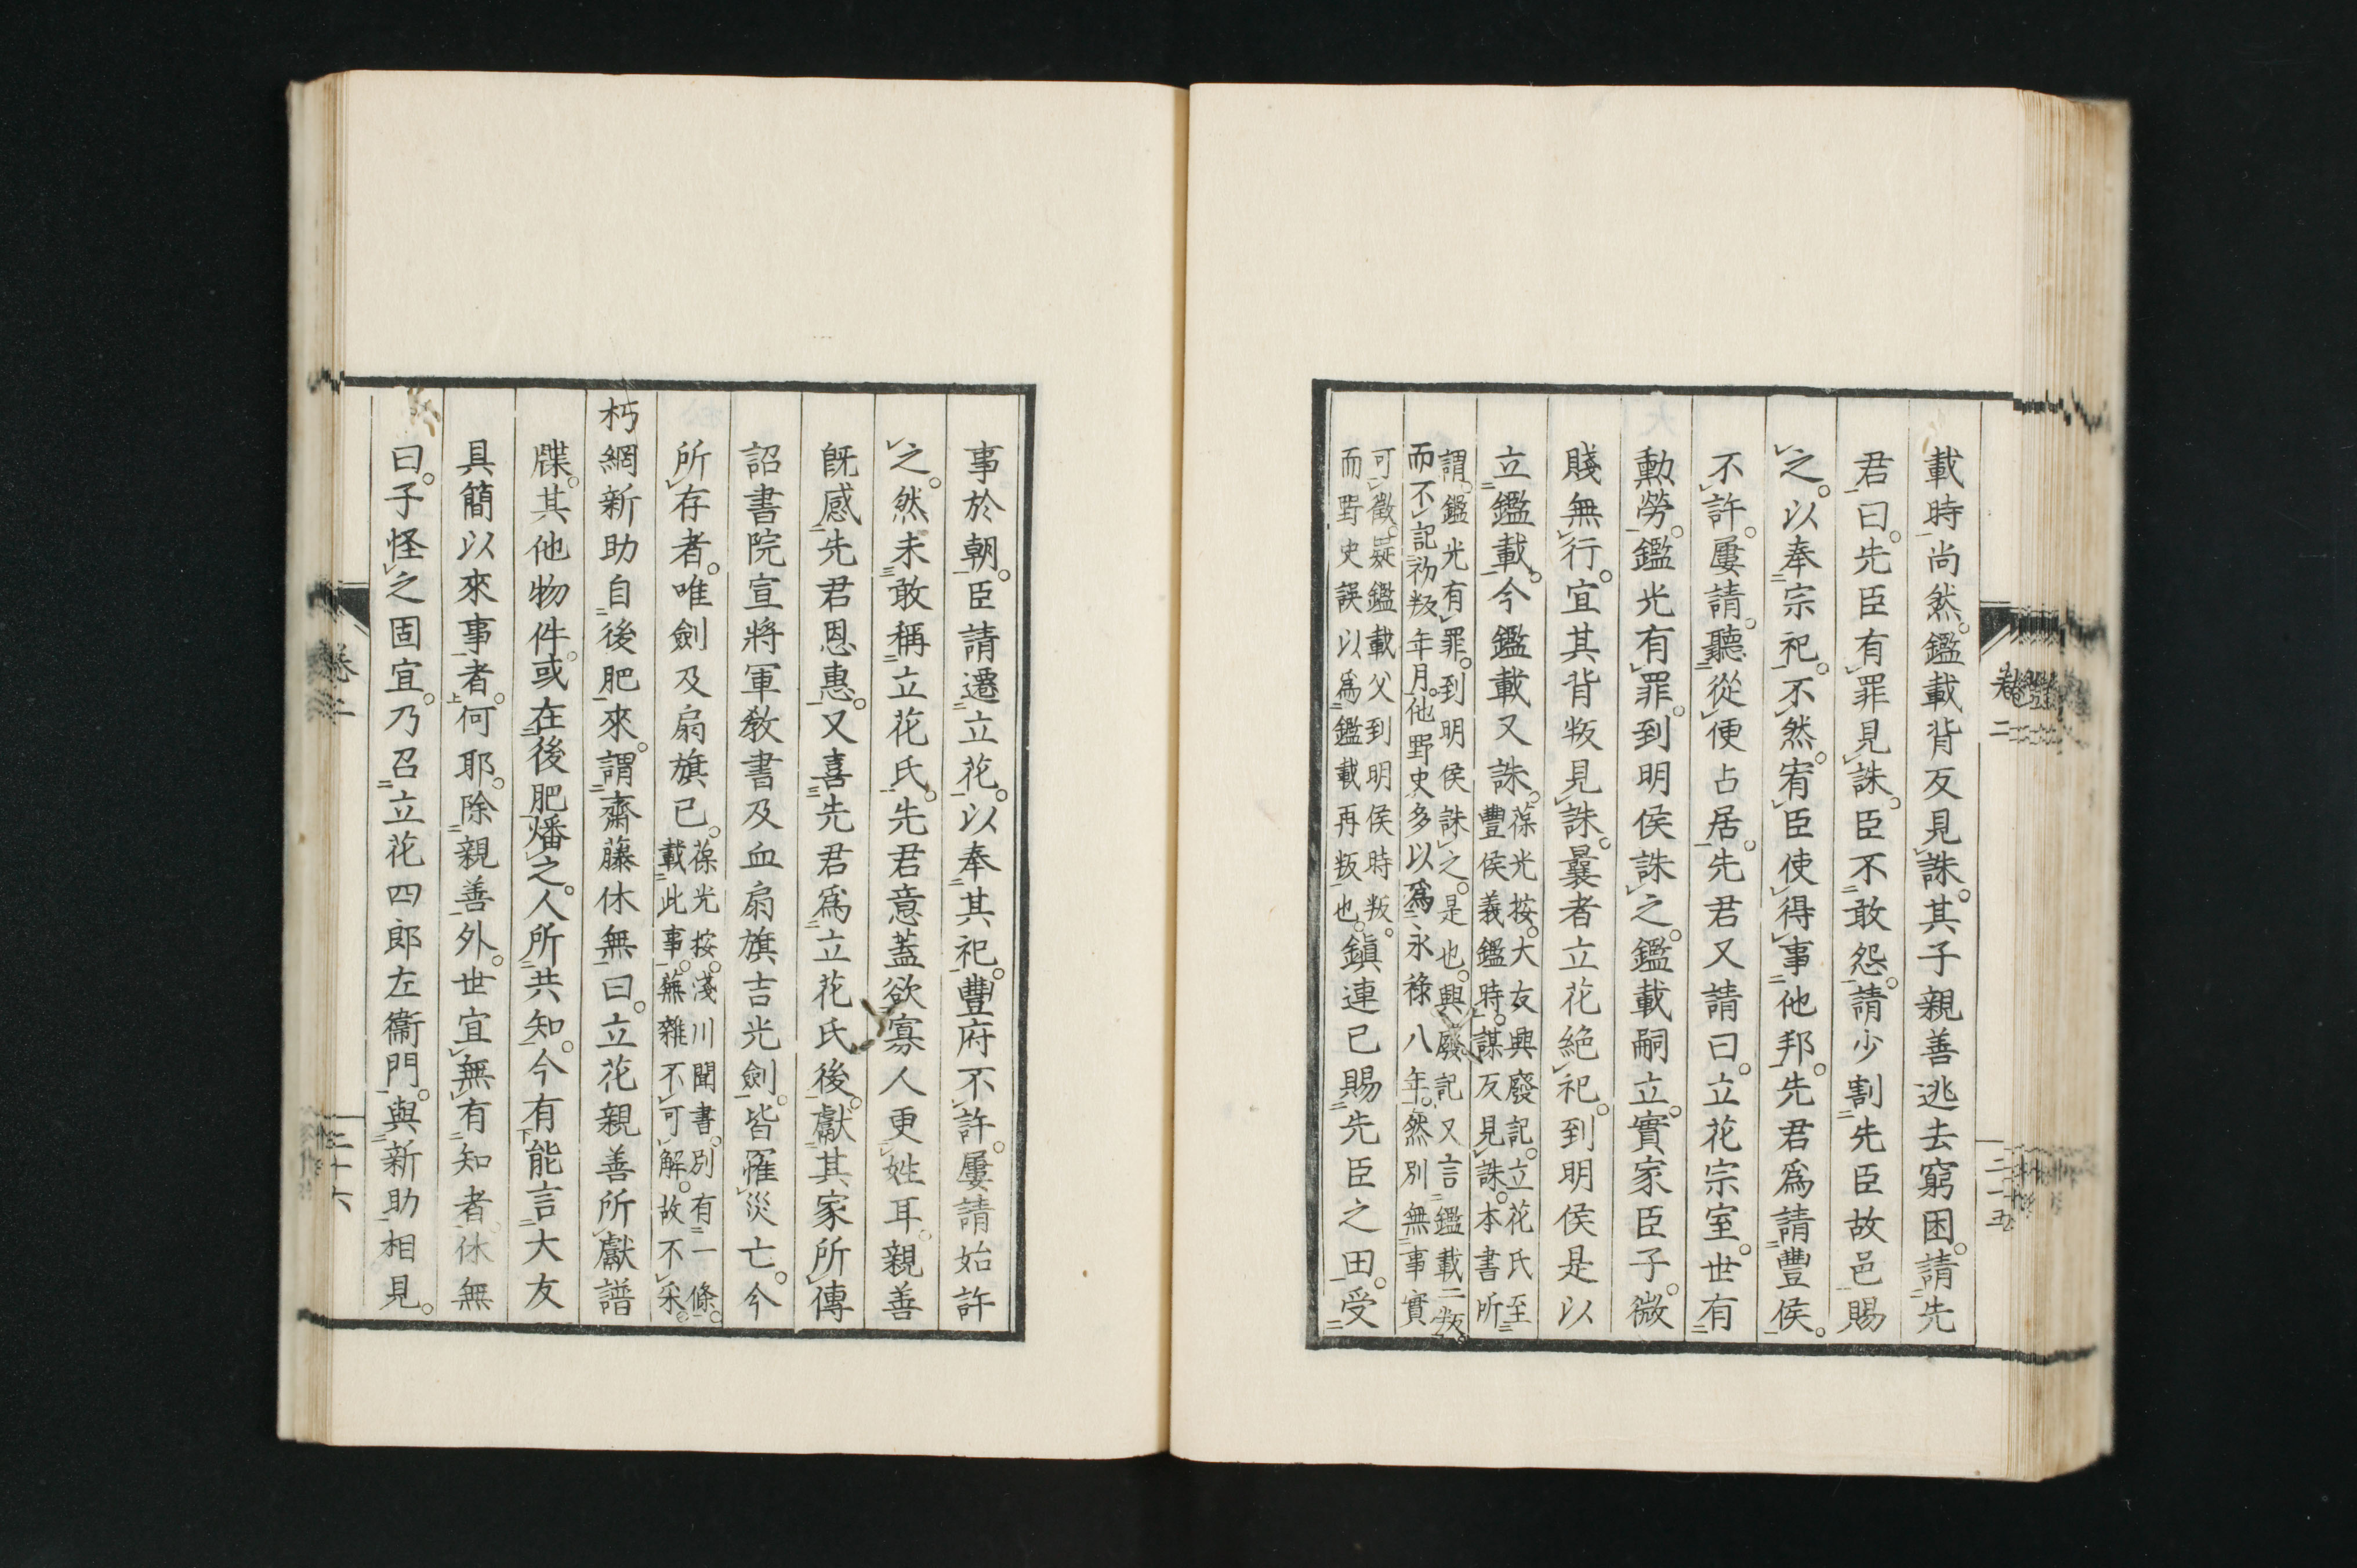 載時尚然。鑑載背反見誅。其子親善逃去窮困。請先
君曰。先臣有罪見誅。臣不敢怨。請少割先臣故邑賜
之。以奉宗祀。不然。宥臣使得事他邦。先君爲請豐侯。
不許。屢請。聽從便占居。先君又請曰。立花宗室。世有
勳勞。鑑光有罪。到明侯誅之。鑑載嗣立。實家臣子。微
賤無行。宜其背叛見誅。曩者立花絶祀。到明侯是以
立鑑載。今鑑載又誅。葆光按。大友興廢記。立花氏至
豐侯義鑑時。謀反見誅。本書所
謂。鑑光有罪。到明侯誅之。是也。興廢記又言鑑載二叛。
而不記初叛年月。他野史多以爲永祿八年。然別無事實
可徵。疑鑑載父到明侯時叛。
而野史誤以爲鑑載再叛也。鎭連已賜先臣之田。受
卷二
二十五
事於朝。臣請遷立花。以奉其祀。豐府不許。屢請始許
之。然未敢稱立花氏。先君意蓋欲寡人更姓耳。親善
旣感先君恩惠。又喜先君爲立花氏後。獻其家所傳
詔書院宣將軍敎書及血扇旗吉光劍。皆罹災亡。今
所存者。唯劍及扇旗已。葆光按。淺川聞書。別有一條。
載此事。蕪雜不可解。故不采。
朽網新助自後肥來。謂齋藤休無曰。立花親善所獻譜
牒。其他物件。或在後肥燔之。人所共知。今有能言大友
具簡以來事者。何耶。除親善外。世宜無有知者。休無
曰。子怪之固宜。乃召立花四郎左衞門。與新助相見。
卷二
二十六